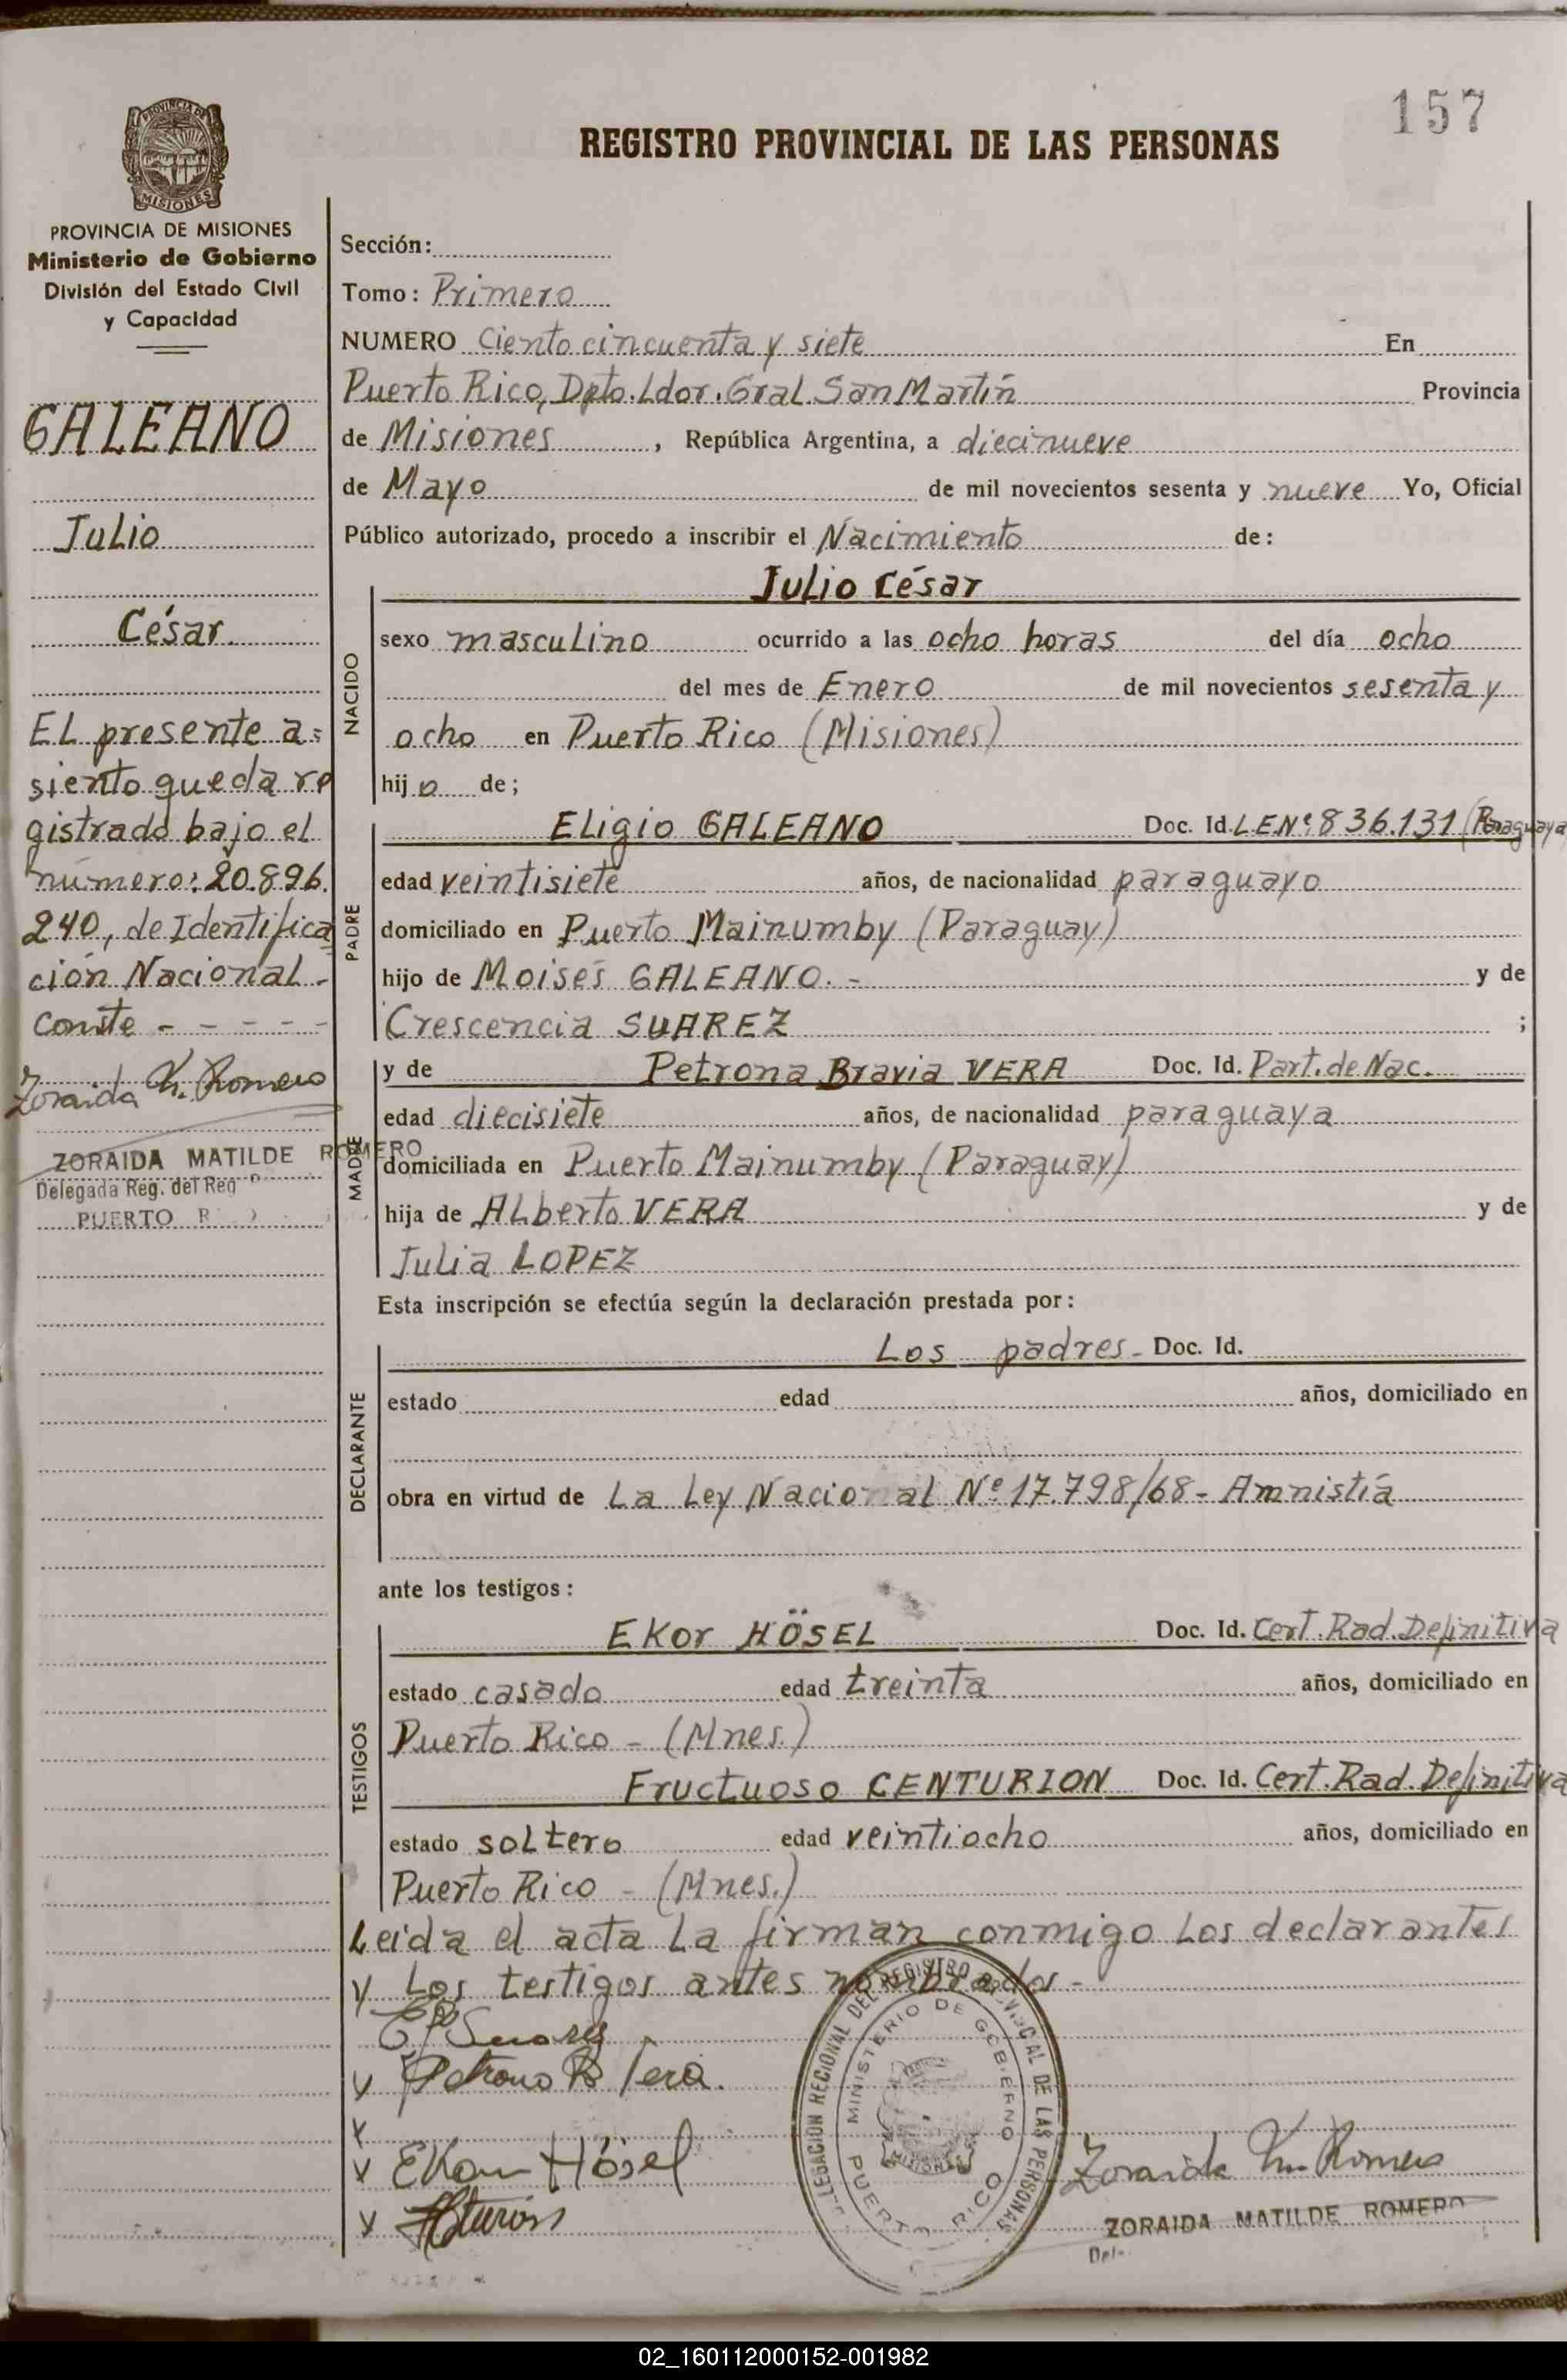 157
REGISTRO PROVINCIAL DE LAS PERSONAS
PROVINCIA DE
MISIONES
PROVINCIA DE MISIONES
Ministerio de Gobierno
División del Estado Civil
y Capacidad
GALEANO
Julio
César
El presente a=
siento queda re
gistrado bajo el
número: 20.896.
240, de Identifica
ción Nacional.-
Conste - - - - -
Zoraida M. Romero
ZORAIDA MATILDE ROMERO
Delegada Reg. del Reg
PUERTO R
Sección:
Tomo: Primero
NUMERO Ciento cincuenta y siete En
Puerto Rico, Dpto. Ldor. Gral. San Martín Provincia
de Misiones, República Argentina, a diecinueve
de Mayo de mil novecientos sesenta y nueve Yo, Oficial
Público autorizado, procedo a inscribir el Nacimiento de:
NACIDO
Julio César
sexo masculino ocurrido a las ocho horas del día ocho
del mes de Enero de mil novecientos sesenta y
ocho en Puerto Rico (Misiones)
hijo de;
PADRE
Eligio GALEANO Doc. Id. L.E.Nº: 836.131 (Paraguaya
edad veintisiete años, de nacionalidad paraguayo
domiciliado en Puerto Mainumby (Paraguay)
hijo de Moisés GALEANO.- y de
Crescencia SUAREZ ;
MADRE
y de Petrona Bravia VERA Doc. Id. Part. de Nac.
edad diecisiete años, de nacionalidad paraguaya
domiciliada en Puerto Mainumby (Paraguay)
hija de Alberto VERA y de
Julia LOPEZ
Esta inscripción se efectúa según la declaración prestada por:
DECLARANTE
Los padres- Doc. Id.
estado edad años, domiciliado en
obra en virtud de La Ley Nacional Nº 17.798/68- Amnistía
ante los testigos:
TESTIGOS
Ekor HÖSEL Doc. Id. Cert. Rad. Definitiva
estado casado edad treinta años, domiciliado en
Puerto Rico - (Mnes.)
Fructuoso CENTURION Doc. Id. Cert. Rad. Definitiva
estado soltero edad veintiocho años, domiciliado en
Puerto Rico - (Mnes.)
Leida el acta la firman conmigo los declarantes
y los testigos antes nombrados-
x Petrona B Vera.
x
x Ekor Hösel
x
DELEGACION REGIONAL DEL REGISTRO PROVINCIAL DE LAS PERSONAS
MINISTERIO DE GOBIERNO
MISIONES
PUERTO RICO
Zoraida M. Romero
ZORAIDA MATILDE ROMERO
Del
02_160112000152-001982